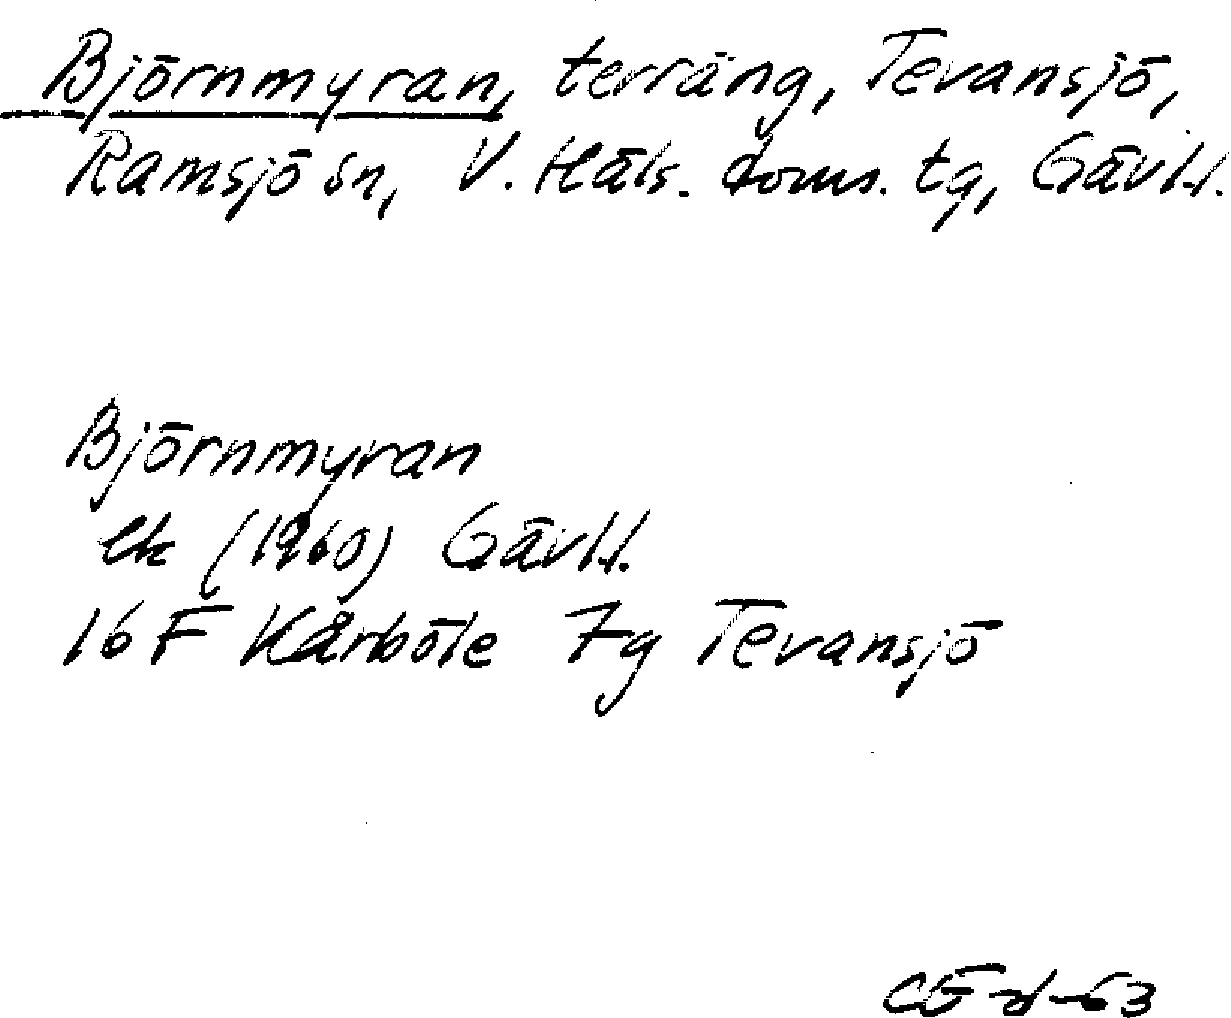 Björnmyran, terräng, Tevansjö,
Ramsjö sn, V. Häls. doms. tg, Gävl.l.
Björnmyran
ek (1960) Gävl.l.
16 F Kårböle 7g Tevansjö